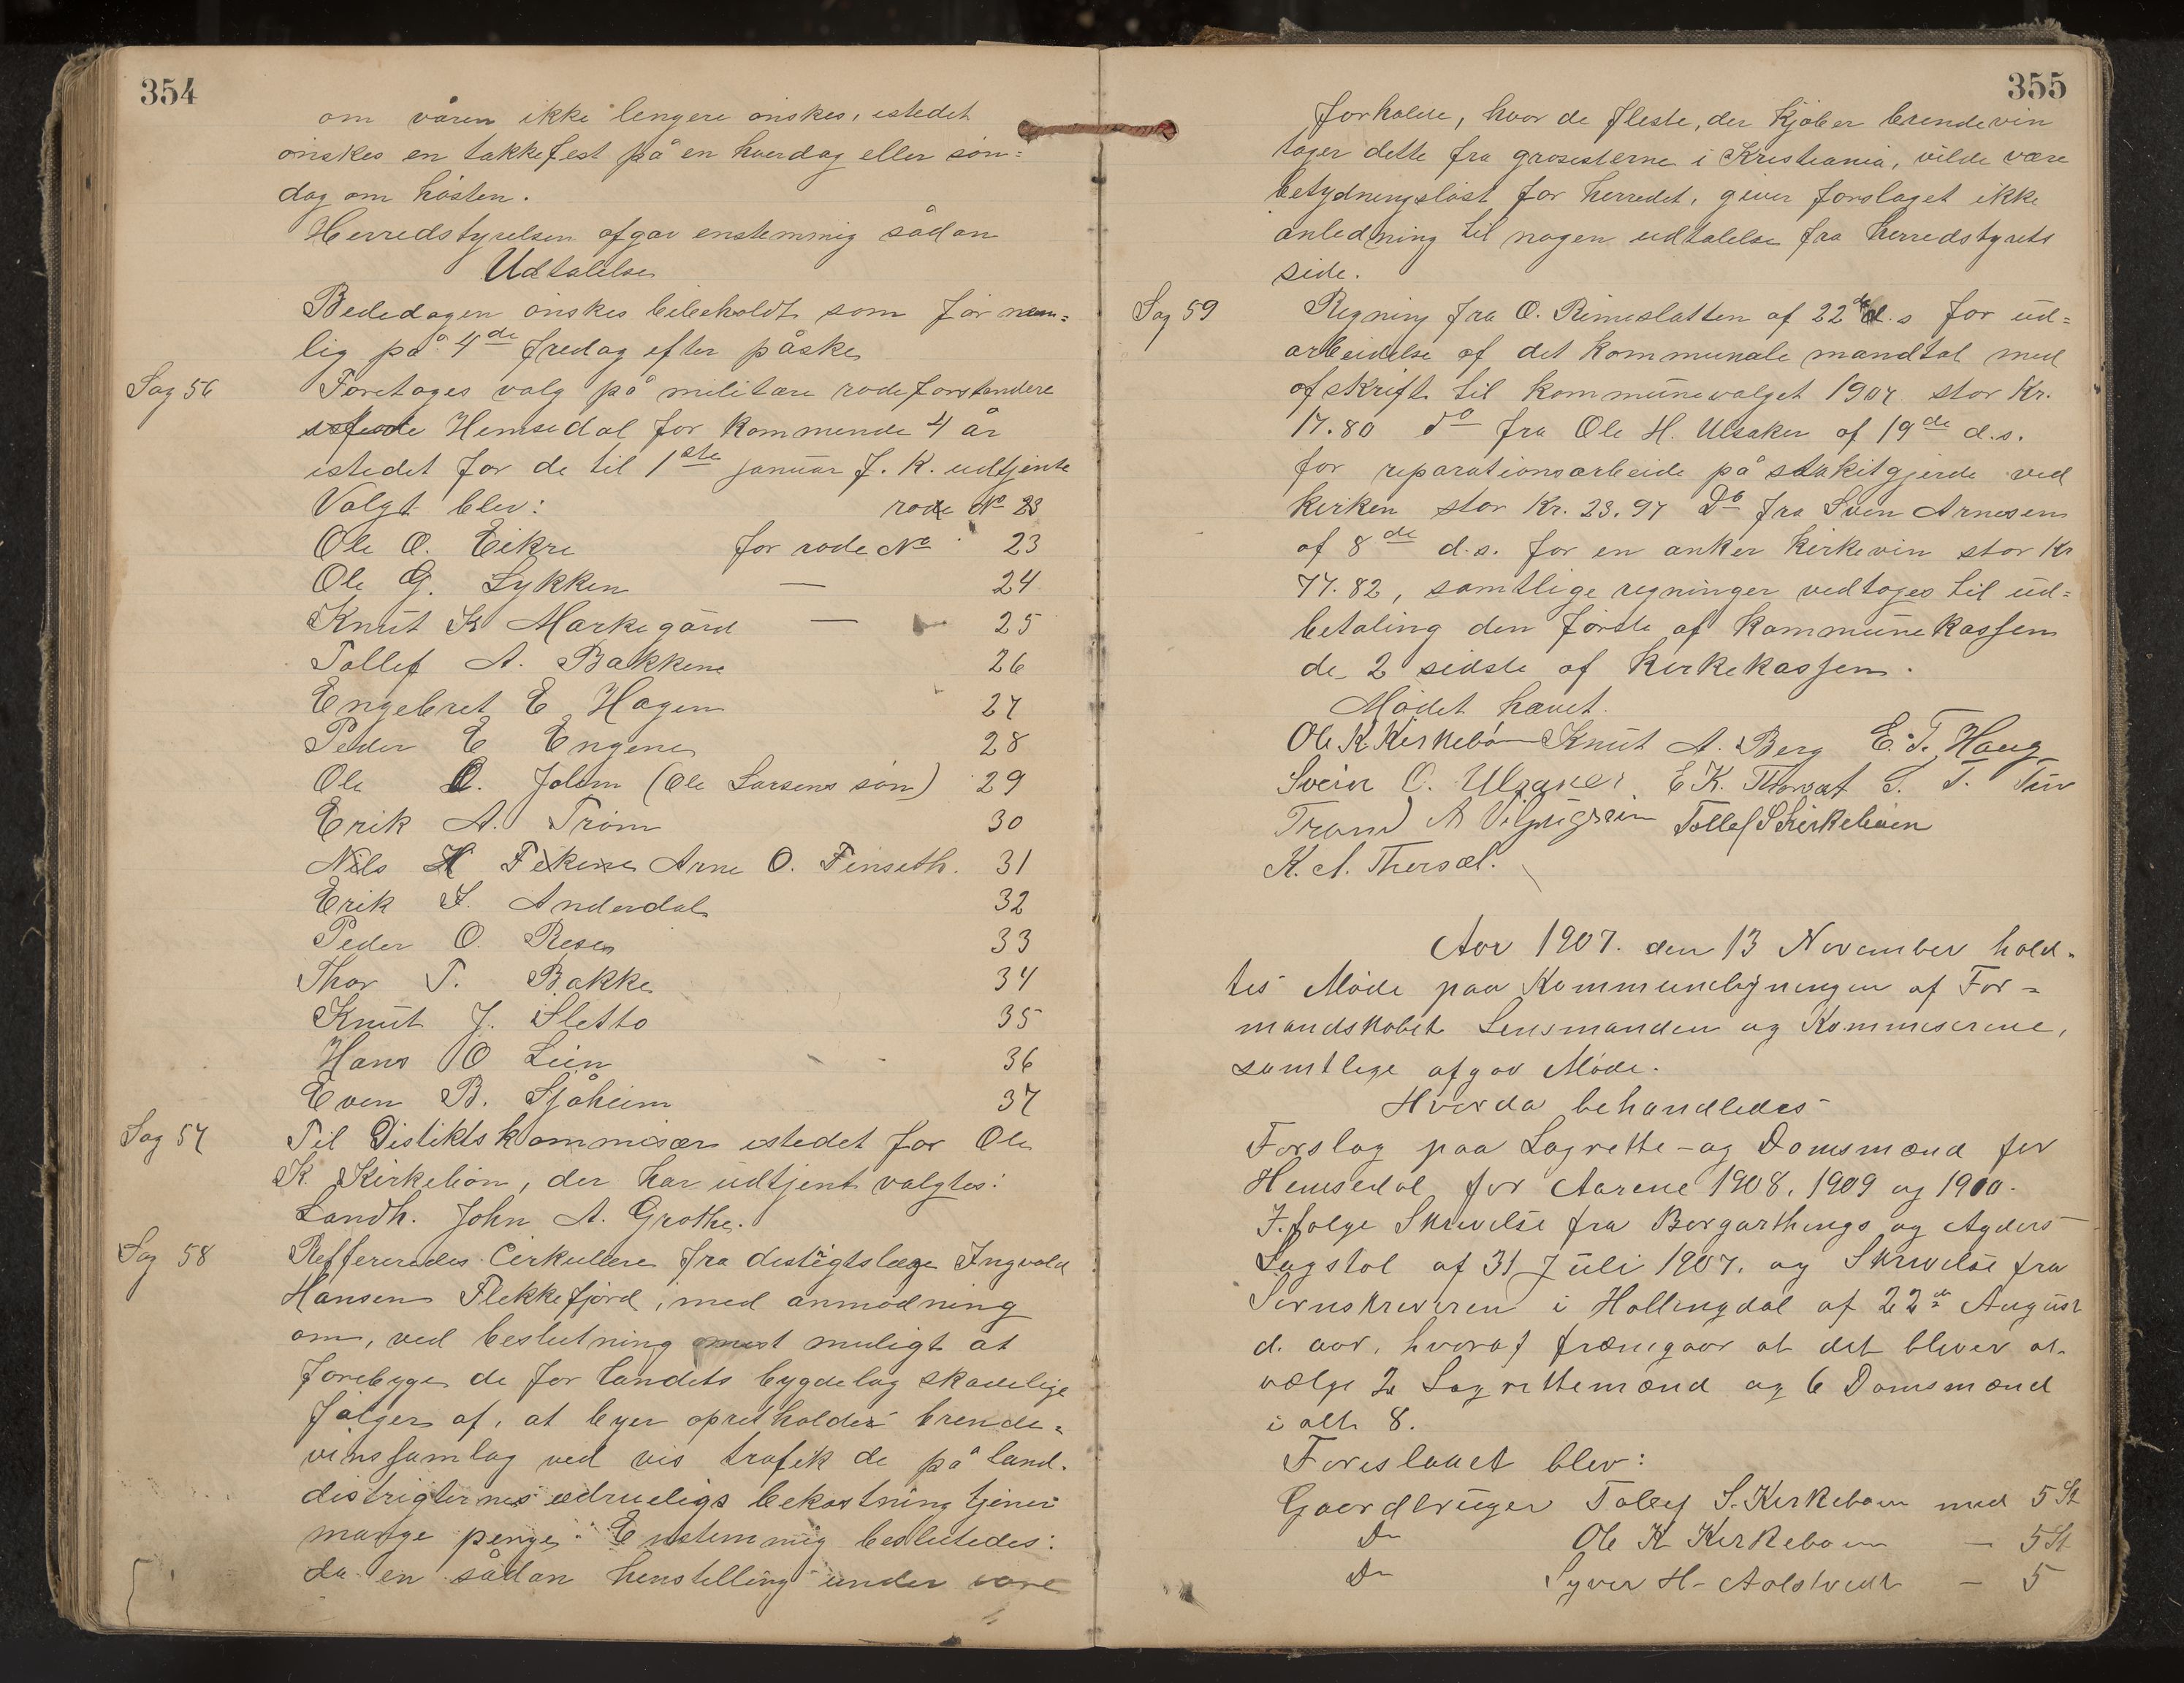 354
om våren ikke lengere ønskes, istedet
ønskes en takkefest på en hverdag eller søn=
dag om høsten.
Herredstyrelsen afgav enstemmig sådan
Udtalelse
Bededagen ønskes bibeholdt som før nem=
lig på 4de fredag efter påske
Sag 56 Foretages valg på militære rodeforstandere
Hemsedal for kommende 4 år
istedet for de til 1ste januar f. k. udtjente
Valgt blev: rode No 23
Ole O. Eikre for rode No 23
Ole G. Lykken — 24
Knut K Markegård — 25
Tollef A. Bakkene 26
Engebret E Hagen 27
Peder E Engene 28
Ole O. Jolem (Ole Larsens søn) 29
Erik A. Trøim 30
Nils H Fekene Arne O. Finseth. 31
Erik S. Anderdal 32
Peder O. Resen 33
Thor T. Bakke 34
Knut J. Sletto 35
Hans O Lien 36
Even B. Sjåheim 37
Sag 57 Til Distiktskommisær istedet for Ole
K. Kirkebøn, der har udtjent valgtes:
Landh. John A. Grøthe.
Sag 58 Refferedes Cirkulære fra distrigtslæge Ingvald
Hansen Flekkefjord, med anmodning
om, ved beslutning mest muligt at
forebyge de for landets bygdelag skadelige
følger af, at byer opretholder brende=
vinssamlag ved vis trafik de på land.
distrigternes ædrueligs bekostning tjener
mange penge. Enstemmig besluttedes:
da en sådan henstelling under vore
355
forholde, hvor de fleste, der kjøber brendevin
tager dette fra grosisterne i Kristiania, vilde være
betydningsløst for herredet, giver forslaget ikke
anledning til nogen udtalelse fra herredstyrets
side.
Sag 59 Regning fra O. Rimeslåtten af 22de d.s for ud=
arbeidelse af det kommunale mandtal med
afskrift til kommunevalget 1907 stor Kr.
17.80 do fra Ole H. Ulsaker af 19de d.s.
for reparationsarbeide på stakitgjerde ved
kirken stor Kr. 23.97 Do fra Sven Arnesen
af 8de d.s. for en anker kirkevin stor Kr
77.82, samtlige regninger vedtages til ud=
betaling den første af kommunekassen
de 2 sidste af kirkekassen.
Mødet hævet.
Ole K. Kirkebø Knut A. Berg E. T. Haug
Svein O. Ulsaker E K. Thorset S. T. Tuv
Trond A Tollef S Kirkebøen
K. A. Thorset.
Aar 1907. den 13 November hold=
tes Møde paa Kommunebygningen af For=
mandskabet Lensmanden og Kommiserene,
samtlege afgav Møde.
Hvorda behandledes
Forslag paa Lagrette-og Domsmænd for
Hemsedal for Aarene 1908, 1909 og 1910.
I.følge Skrivelse fra Borgarthings og Agders
Lagstol af 31 Juli 1907. og Skrivelse fra
Sornskriveren i Hallingdal af 22de August
d. aar, hvoraf fræmgaar at det bliver at
vælge 2 Lagrettemænd og 6 Domsmænd
i alt 8.
Foreslaaet blev:
Gaardbruger Tollef S. Kirkebøen med 5 St
Do Ole K Kirkebøen — 5 St
Do Syver H- Aalstvedt — 5